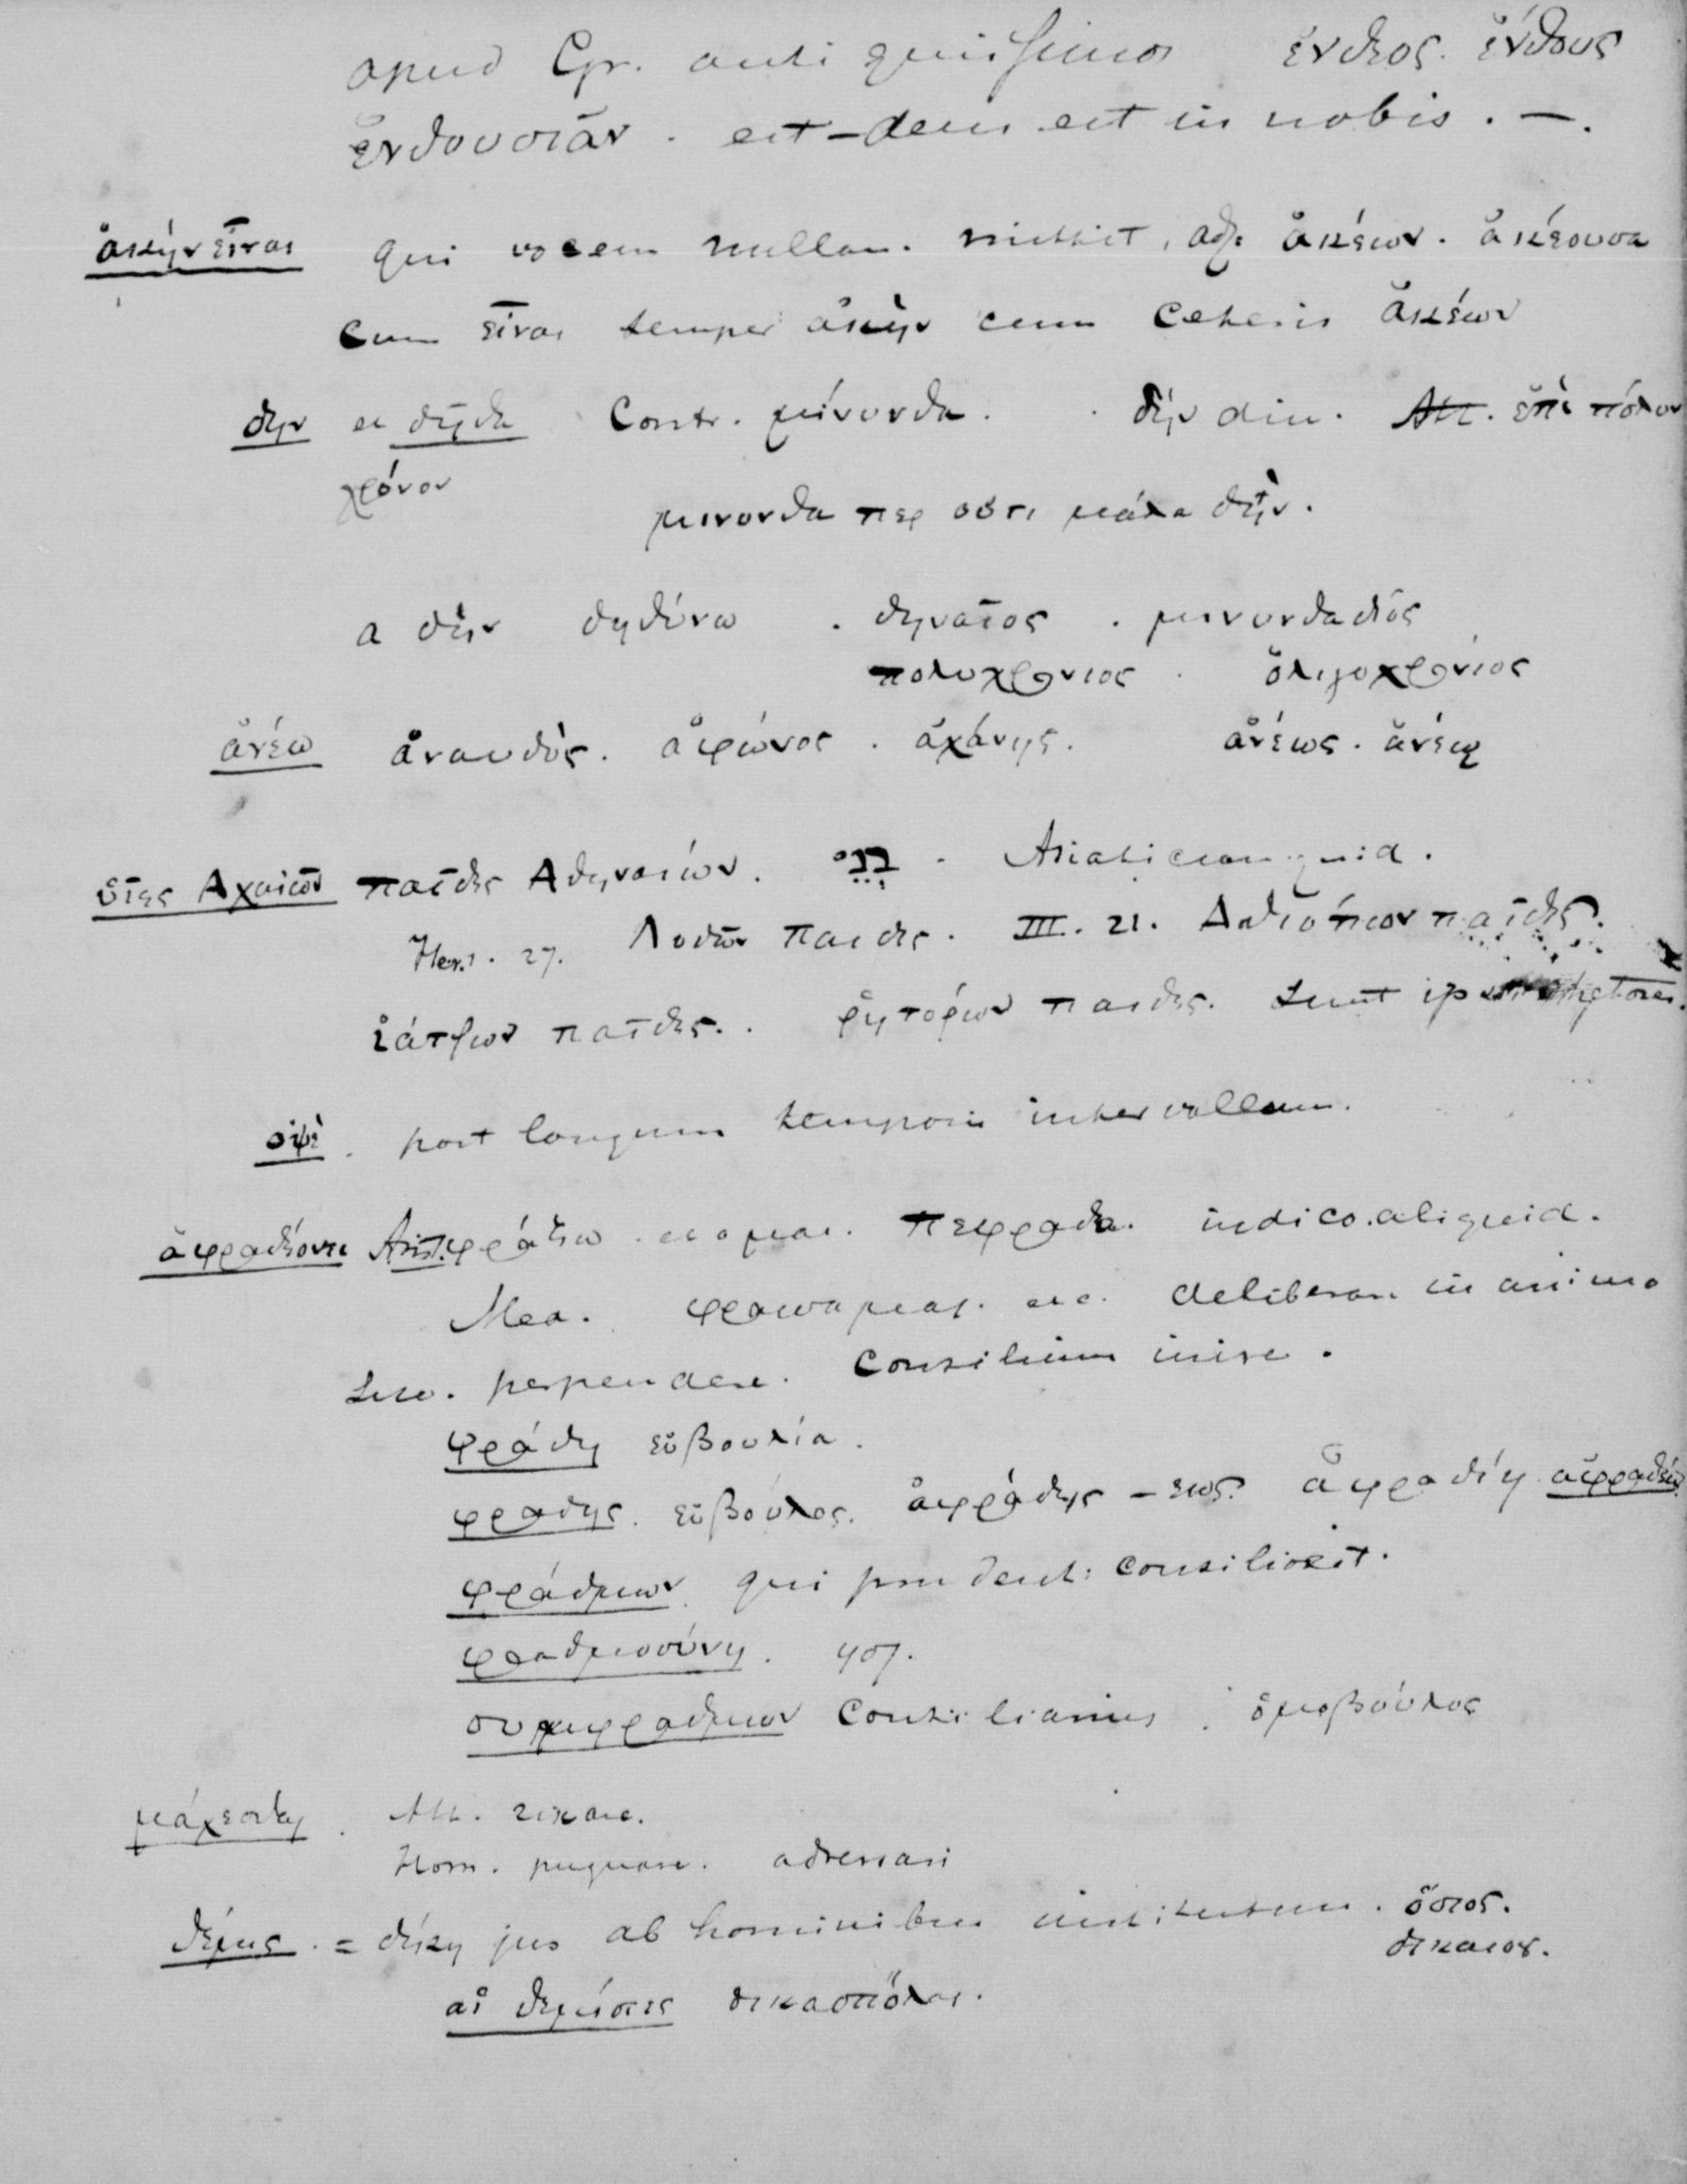 apud Gr. antiquissimos ἔνθεος. ἔνθους
ἐνθουσιᾶν. est – deus est in nobis. —.
ἀκὴν εἶναι qui vocem nullam mittit, adj. ἀκέων. ἀκέουσα
cum εἶναι semper ἀκὴν cum ceteris ἀκέων
δην et δηθα Contr. μίνυνθα. δήν diu. Att. ἐπὶ πόλυν
χρόνον
μινυνθα περ οὔτι μάλα δὴν.
a δὴν δηθύνω. δηναῖος. μινυνθαδιος
πολυχρονιος. ὀλιγοχρόνιος
ἀνέω ἀναυδὸς. ἀφώνος. ἀχάνης. ἀνέως. ἀνέῳ
υἷες Αχαιῶν παῖδες Αθηναίων. בני. Asiaticum quid.
Her. 1. 27. Λυδῶν παιδες. III. 21. Αιθιόπων παῖδες.
ἰάτρων παῖδες. ῥητόρων παιδες. sunt ips
οψὲ. post longum temporis intervallum.
ἀφραδέοντι Att. φράζω πεφραδα. indico aliquid.
Med. deliberare in animo
secu. perpendere. Consilium inire.
φράδη εὐβουλία.
φραδης. εὐβούλος. ἀφράδης – εως. ἀφραδίη ἀφραδέω
φράδμων. qui prudenti consilio est.
φραδμοσύνη.
συμφραδμων Consiliarius. ὁμοβούλος
μάχεσθαι. Att. rixare.
Hom. pugnare. adversari
θέμις. = δίκη jus ab hominibus institutum. ὅσιος.
δικαιος.
αἱ θεμίστες δικασπόλοι.